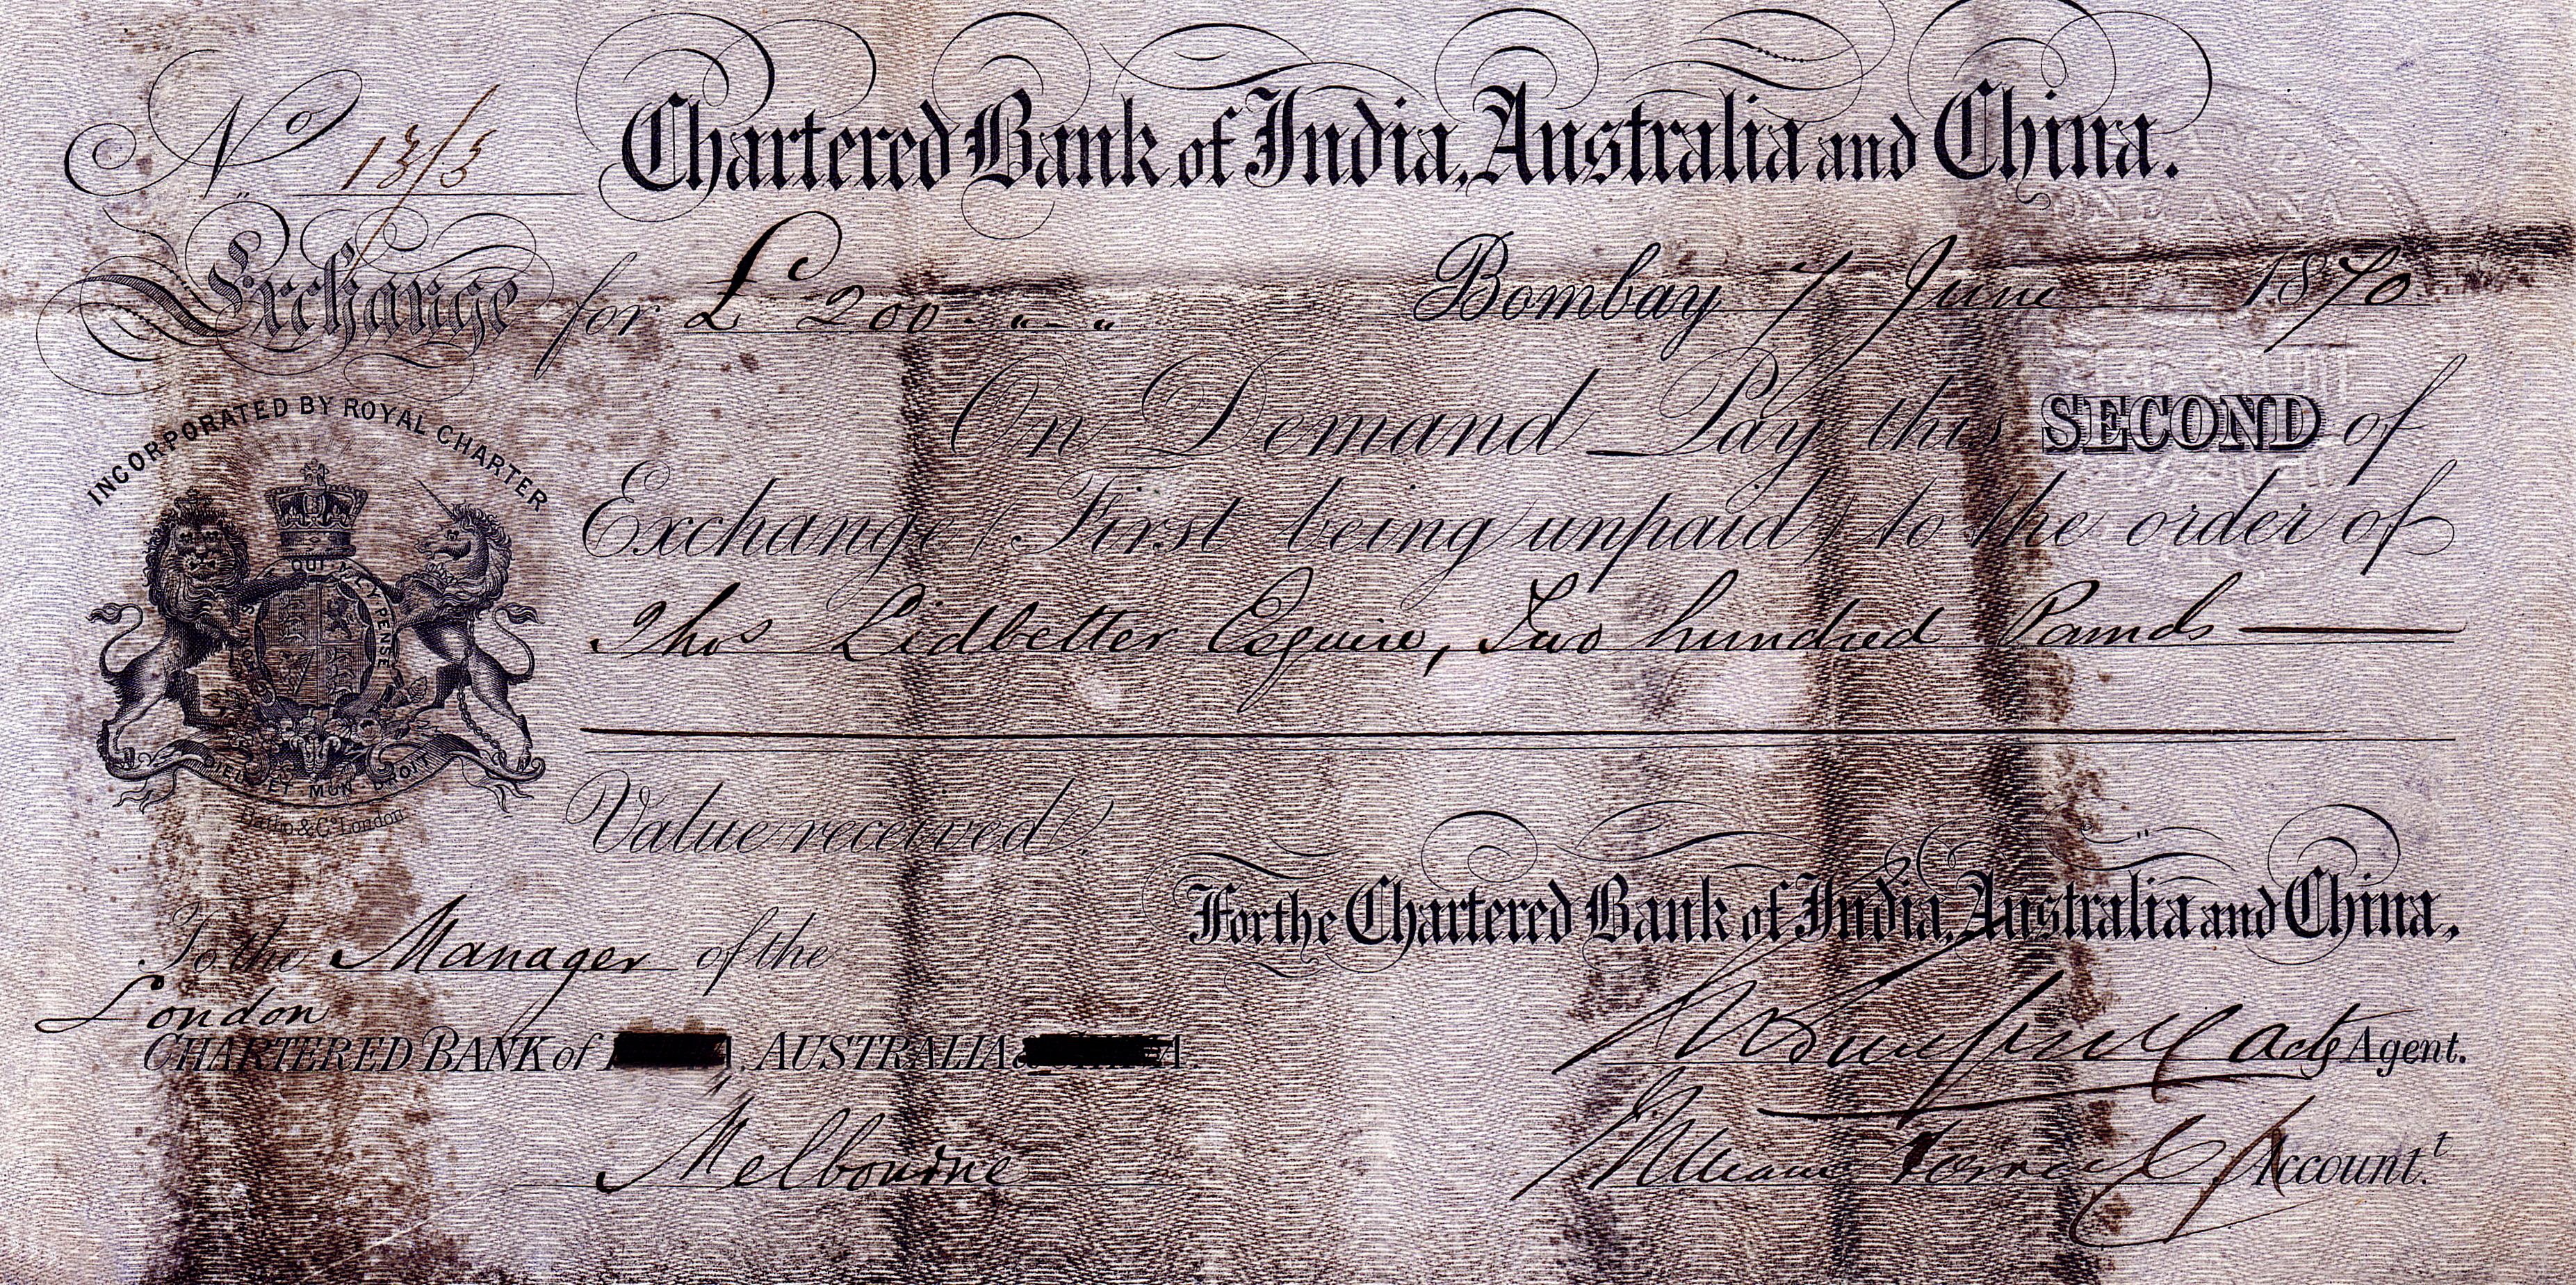 No 13/5
Chartered Bank of India, Australia and China.
Exchange for £ 200 - " - "
Bombay 7 June 1870
On Demand Pay this SECOND of
Exchange (First being unpaid) to the order of
Thos Lidbetter Esquire, Two hundred Pounds
INCORPORATED BY ROYAL CHARTER
HONI SOIT QUI MAL Y PENSE
DIEU ET MON DROIT
& Co. London
Value received.
For the Chartered Bank of India, Australia and China,
To the Manager of the
London
CHARTERED BANK of AUSTRALIA
Melbourne
Actg Agent.
William Account.t
ONE ANNA